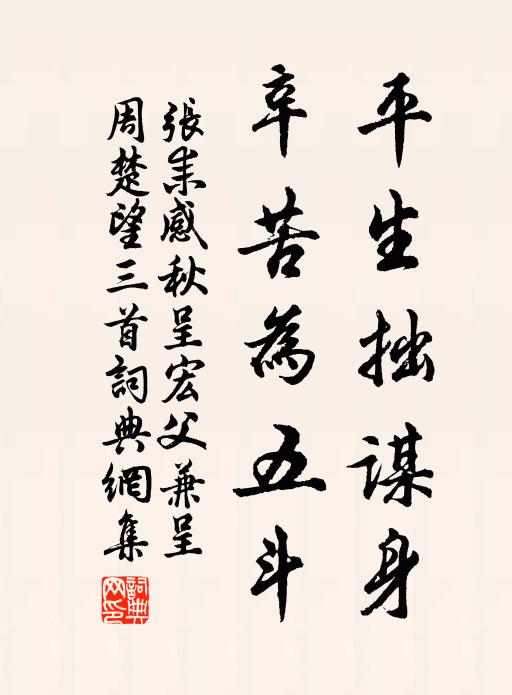 平生拙謀身
辛苦為五斗
張耒感秋呈宏父兼呈
周楚望三首詞典網集
詞典網印